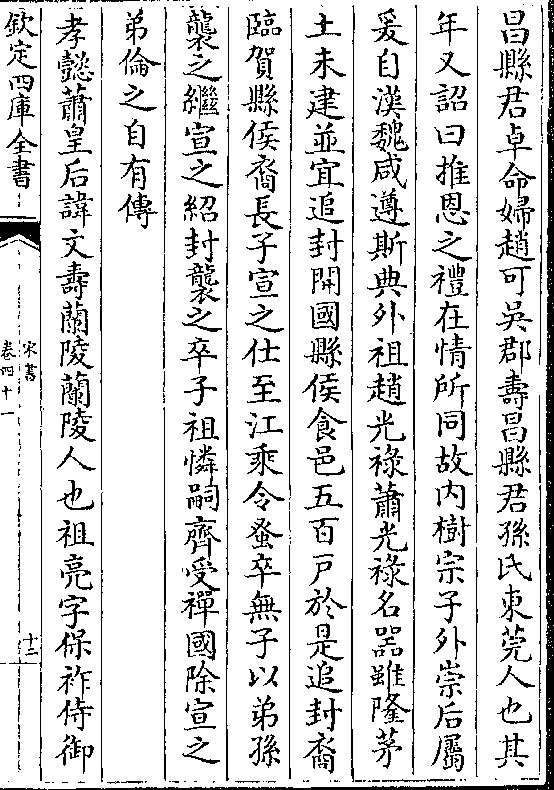 昌縣君卓命婦趙可吳郡壽昌縣君孫氏東莞人也其
年又詔曰推恩之禮在情所同故内樹宗子外崇后屬
爰自漢魏咸遵斯典外祖趙光祿蕭光祿名器雖隆茅
土未建並宜追封開國縣侯食邑五百戶於是追封裔
臨賀縣侯裔長子宣之仕至江乘令蚤卒無子以弟孫
襲之繼宣之紹封襲之卒子祖憐嗣齊受禪國除宣之
弟倫之自有傳
孝懿蕭皇后諱文壽蘭陵蘭陵人也祖亮字保祚侍御
欽定四庫全書
宋書
卷四十一
十二